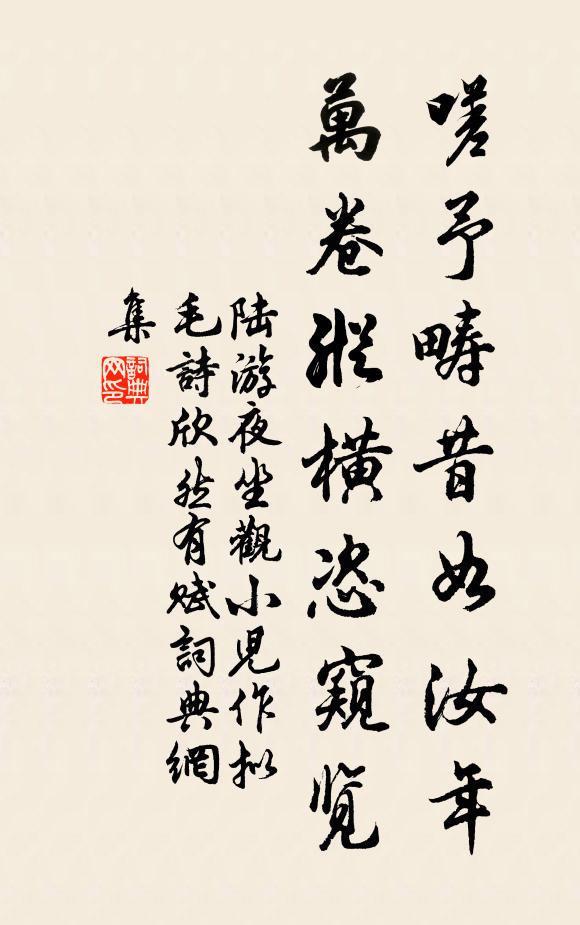 嗟予疇昔如汝年
萬卷縱橫恣窺覽
陸游夜坐觀小兒作拟
毛詩欣然有賦詞典網
集
詞典
网印